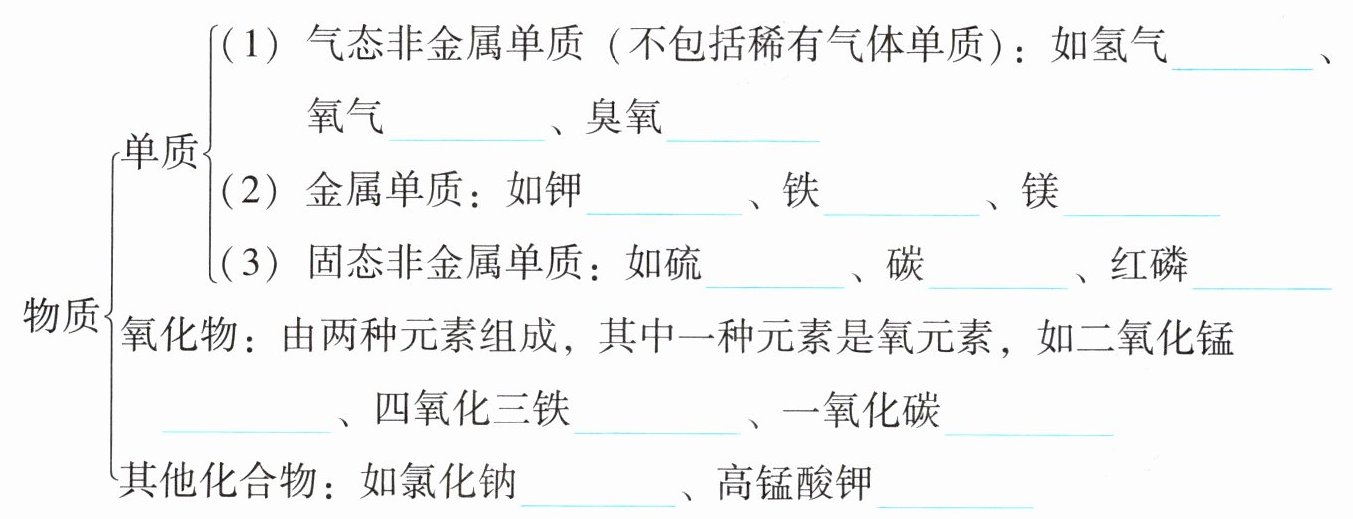 (1) 气态非金属单质（不包括稀有气体单质）：如氢气________、
氧气________、臭氧________
单质
(2) 金属单质：如钾________、铁________、镁________
(3) 固态非金属单质：如硫________、碳________、红磷________
物质
氧化物：由两种元素组成，其中一种元素是氧元素，如二氧化锰
________、四氧化三铁________、一氧化碳________
其他化合物：如氯化钠________、高锰酸钾________